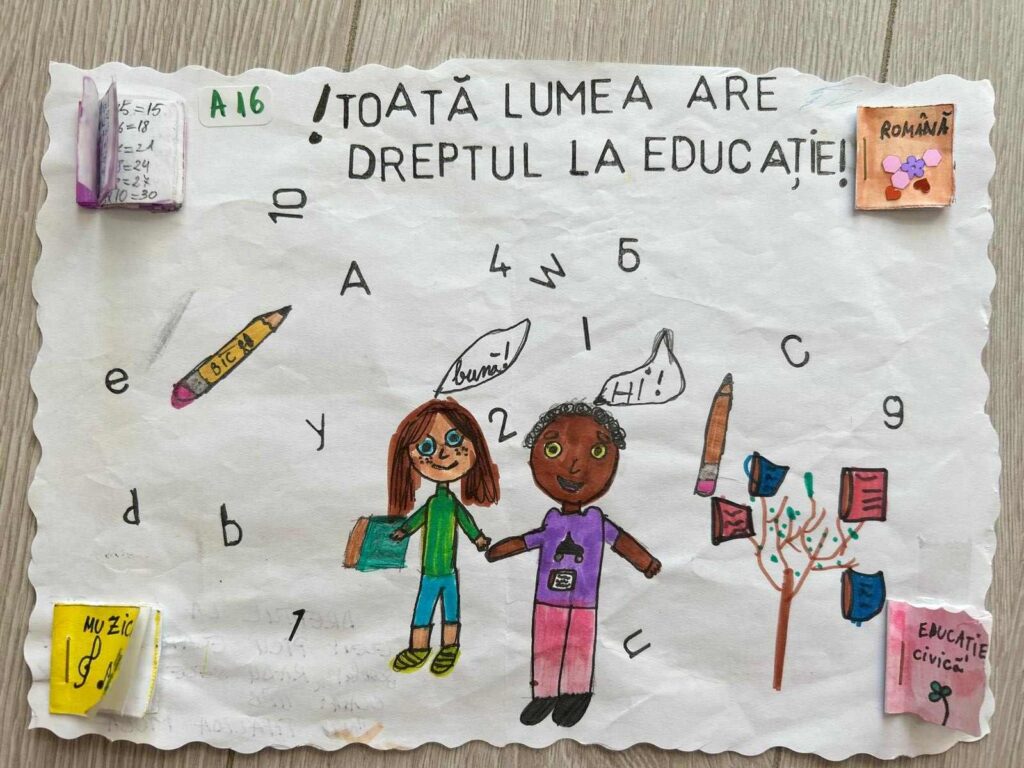 A16
!TOATĂ LUMEA ARE
DREPTUL LA EDUCAȚIE!
5=15
6=18
=21
=24
=27
10=30
ROMÂNĂ
10
A
4
W
5
BIC
bună!
1
HI!
C
e
y
2
g
d
b
1
u
MUZIC
EDUCAȚIE
civică